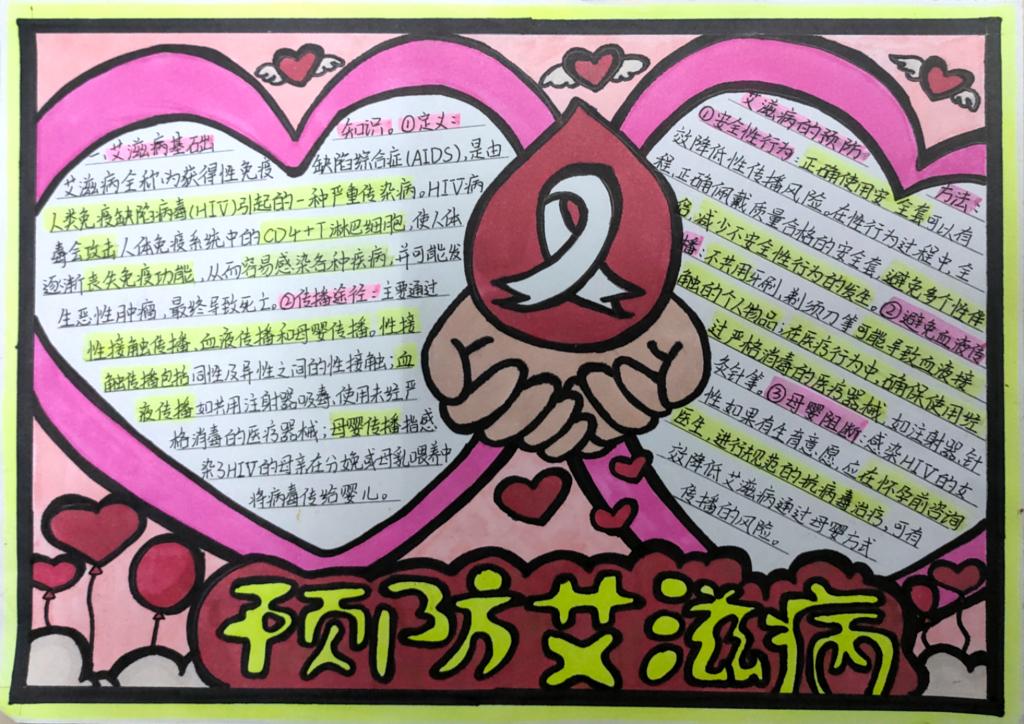 一、艾滋病基础知识。①定义：
艾滋病全称为获得性免疫缺陷综合症(AIDS),是由
人类免疫缺陷病毒(HIV)引起的一种严重传染病。HIV病
毒会攻击人体免疫系统中的CD4+T淋巴细胞,使人体
逐渐丧失免疫功能,从而容易感染各种疾病,并可能发
生恶性肿瘤,最终导致死亡。②传播途径：主要通过
性接触传播、血液传播和母婴传播。性接
触传播包括同性及异性之间的性接触；血
液传播如共用注射器吸毒、使用未经严
格消毒的医疗器械；母婴传播指感
染了HIV的母亲在分娩或母乳喂养中
将病毒传给婴儿。
艾滋病的预防方法：
①安全性行为：正确使用安全套可以有
效降低性传播风险。在性行为过程中,全
程,正确佩戴质量合格的安全套,避免多个性伴
侣,减少不安全性行为的发生。②避免血液传
播：不共用牙刷,剃须刀等可能导致血液接
触的个人物品；在医疗行为中,确保使用经
过严格消毒的医疗器械,如注射器,针
灸针等。③母婴阻断：感染HIV的女
性如果有生育意愿,应在怀孕前咨询
医生,进行规范的抗病毒治疗,可有
效降低艾滋病通过母婴方式
传播的风险。
预防艾滋病